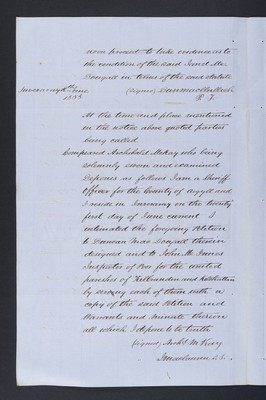 noon present to take evidence as to
the condition of the said Janet Mc
Dougall in terms of the said statute
(signed) Dun maccullock
P. F.
June
1855
At the time and place mentioned
in the notice above quoted parties
being called
Compeared Archibald McKay who being
solemnly sworn and examined
Depones as follows I am a Sheriff
Officer for the County of Argyll and
I reside in Inveraray on the twenty
first day of June current I
intimated the foregoing Petition
to Duncan MacDougall therein
designed and to John McInnes
Inspector of Poor for the united
parishes of Kilbrandon and Kilchattan
by serving each of them with a
copy of the said Petition and
Warrants and minute therein
all which I depone to be truth
(signed) Archd McKay